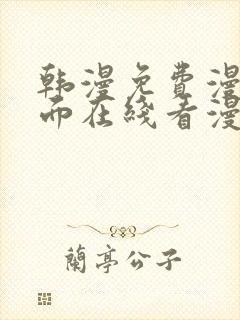 韩漫免费漫
而在线看漫
蘭亭公子